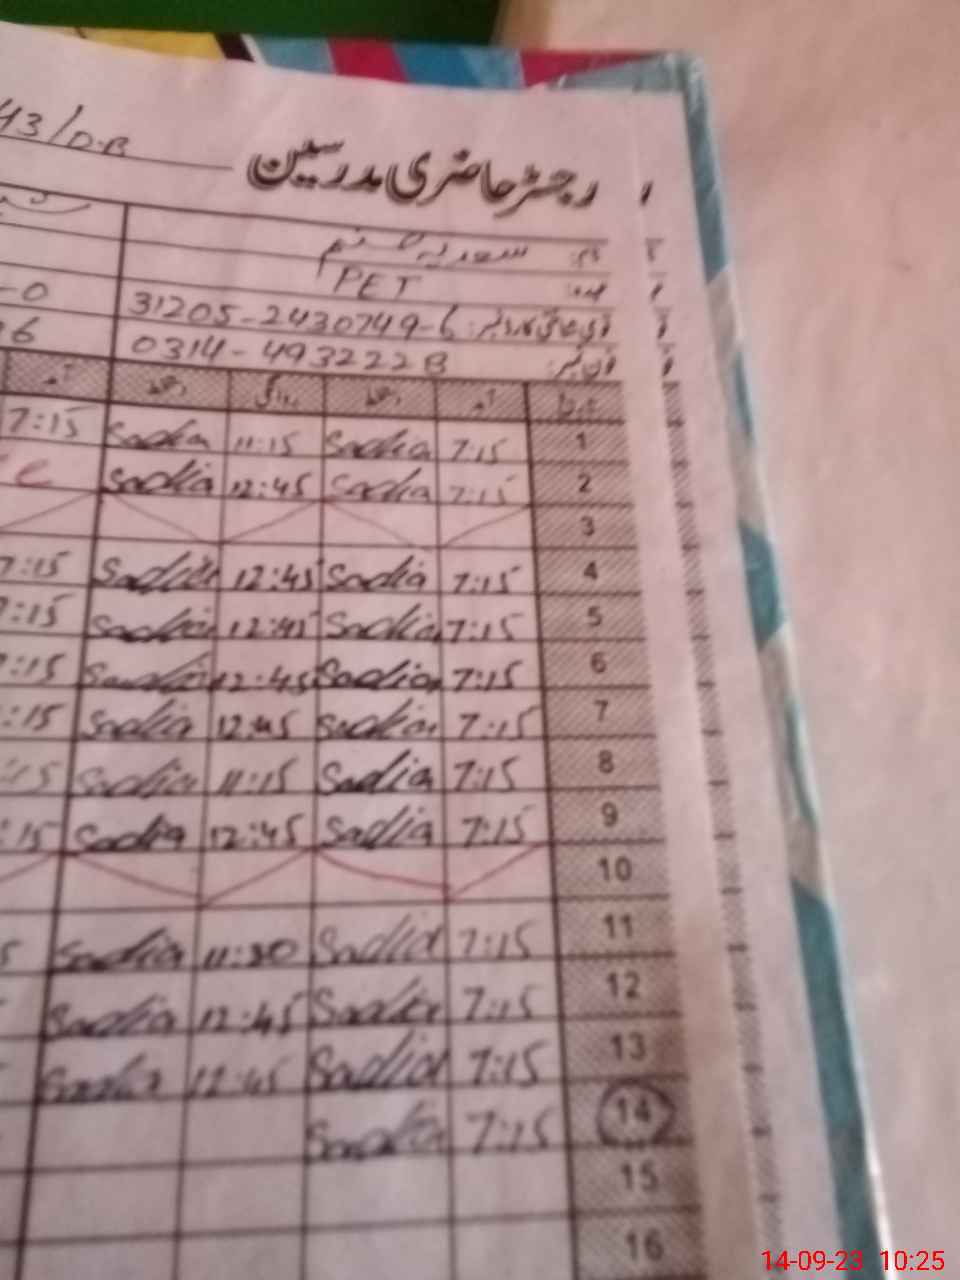 43/D.B
رجسٹر حاضری مدرسین
نام: سعدیہ صنم
عہدہ: PET
قومی شناختی کارڈ نمبر: 31205-2430749-6
-0
فون نمبر: 0314-4932228
آمد دستخط روانگی دستخط آمد
1 7:15 Sadia 11:15 Sadia 7:15
2 7:15 Sadia 12:45 Sadia
3
4 7:15 Sadia 12:45 Sadia 7:15
5 7:15 Sadia 12:45 Sadia 7:15
6 7:15 Sadia 12:45 Sadia :15
7 7:15 Sadia 12:45 Sadia :15
8 7:15 Sadia 11:15 Sadia :15
9 7:15 Sadia 12:45 Sadia :15
10
11 7:15 Sadia 11:30 Sadia 5
12 7:15 Sadia 12:45 Sadia
13 7:15 Sadia 12:45 Sadia
14 7:15 Sadia
15
16
14-09-23 10:25